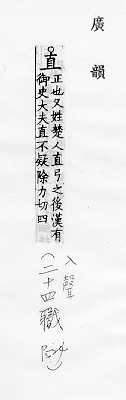 廣韻
直
正也又姓楚人直弓之後漢有
御史大夫直不疑除力切四
入聲
(二十四職